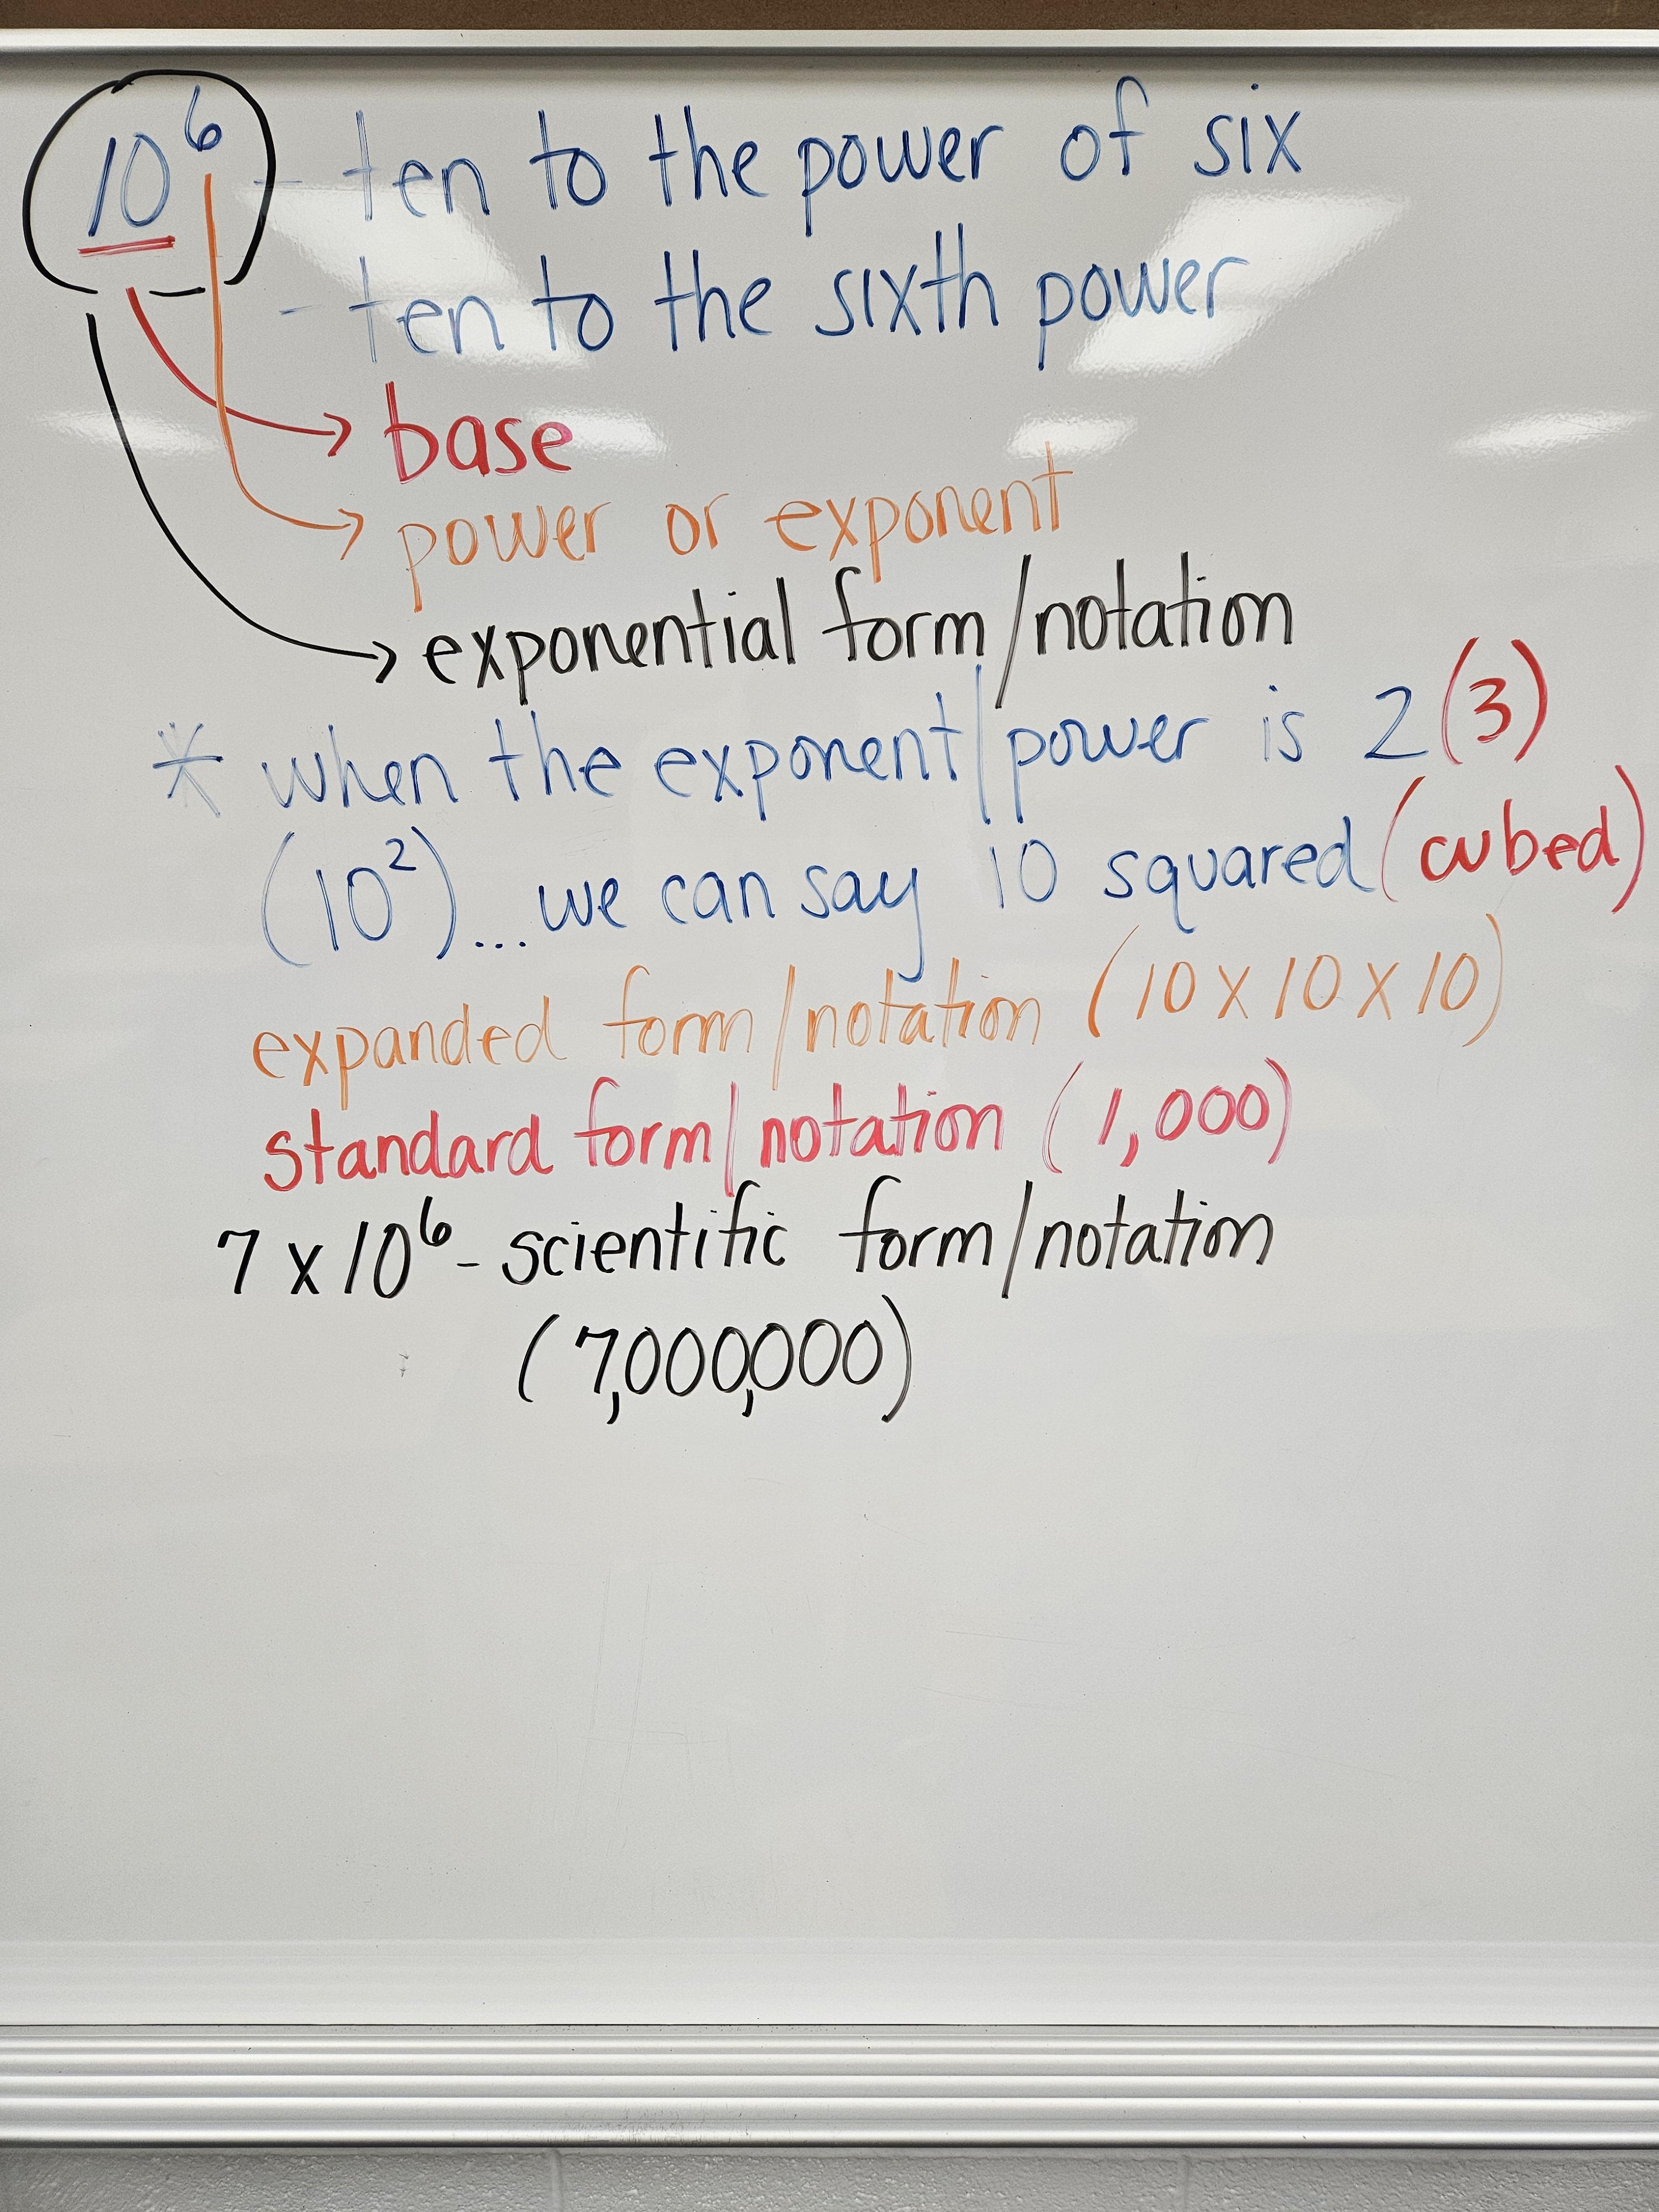 10⁶ - ten to the power of six
- ten to the sixth power
→ base
→ power or exponent
→ exponential form/notation
* when the exponent/power is 2 (3)
(10²)...we can say 10 squared (cubed)
expanded form/notation (10 x 10 x 10)
standard form/notation (1,000)
7 x 10⁶ - scientific form/notation
(7,000,000)